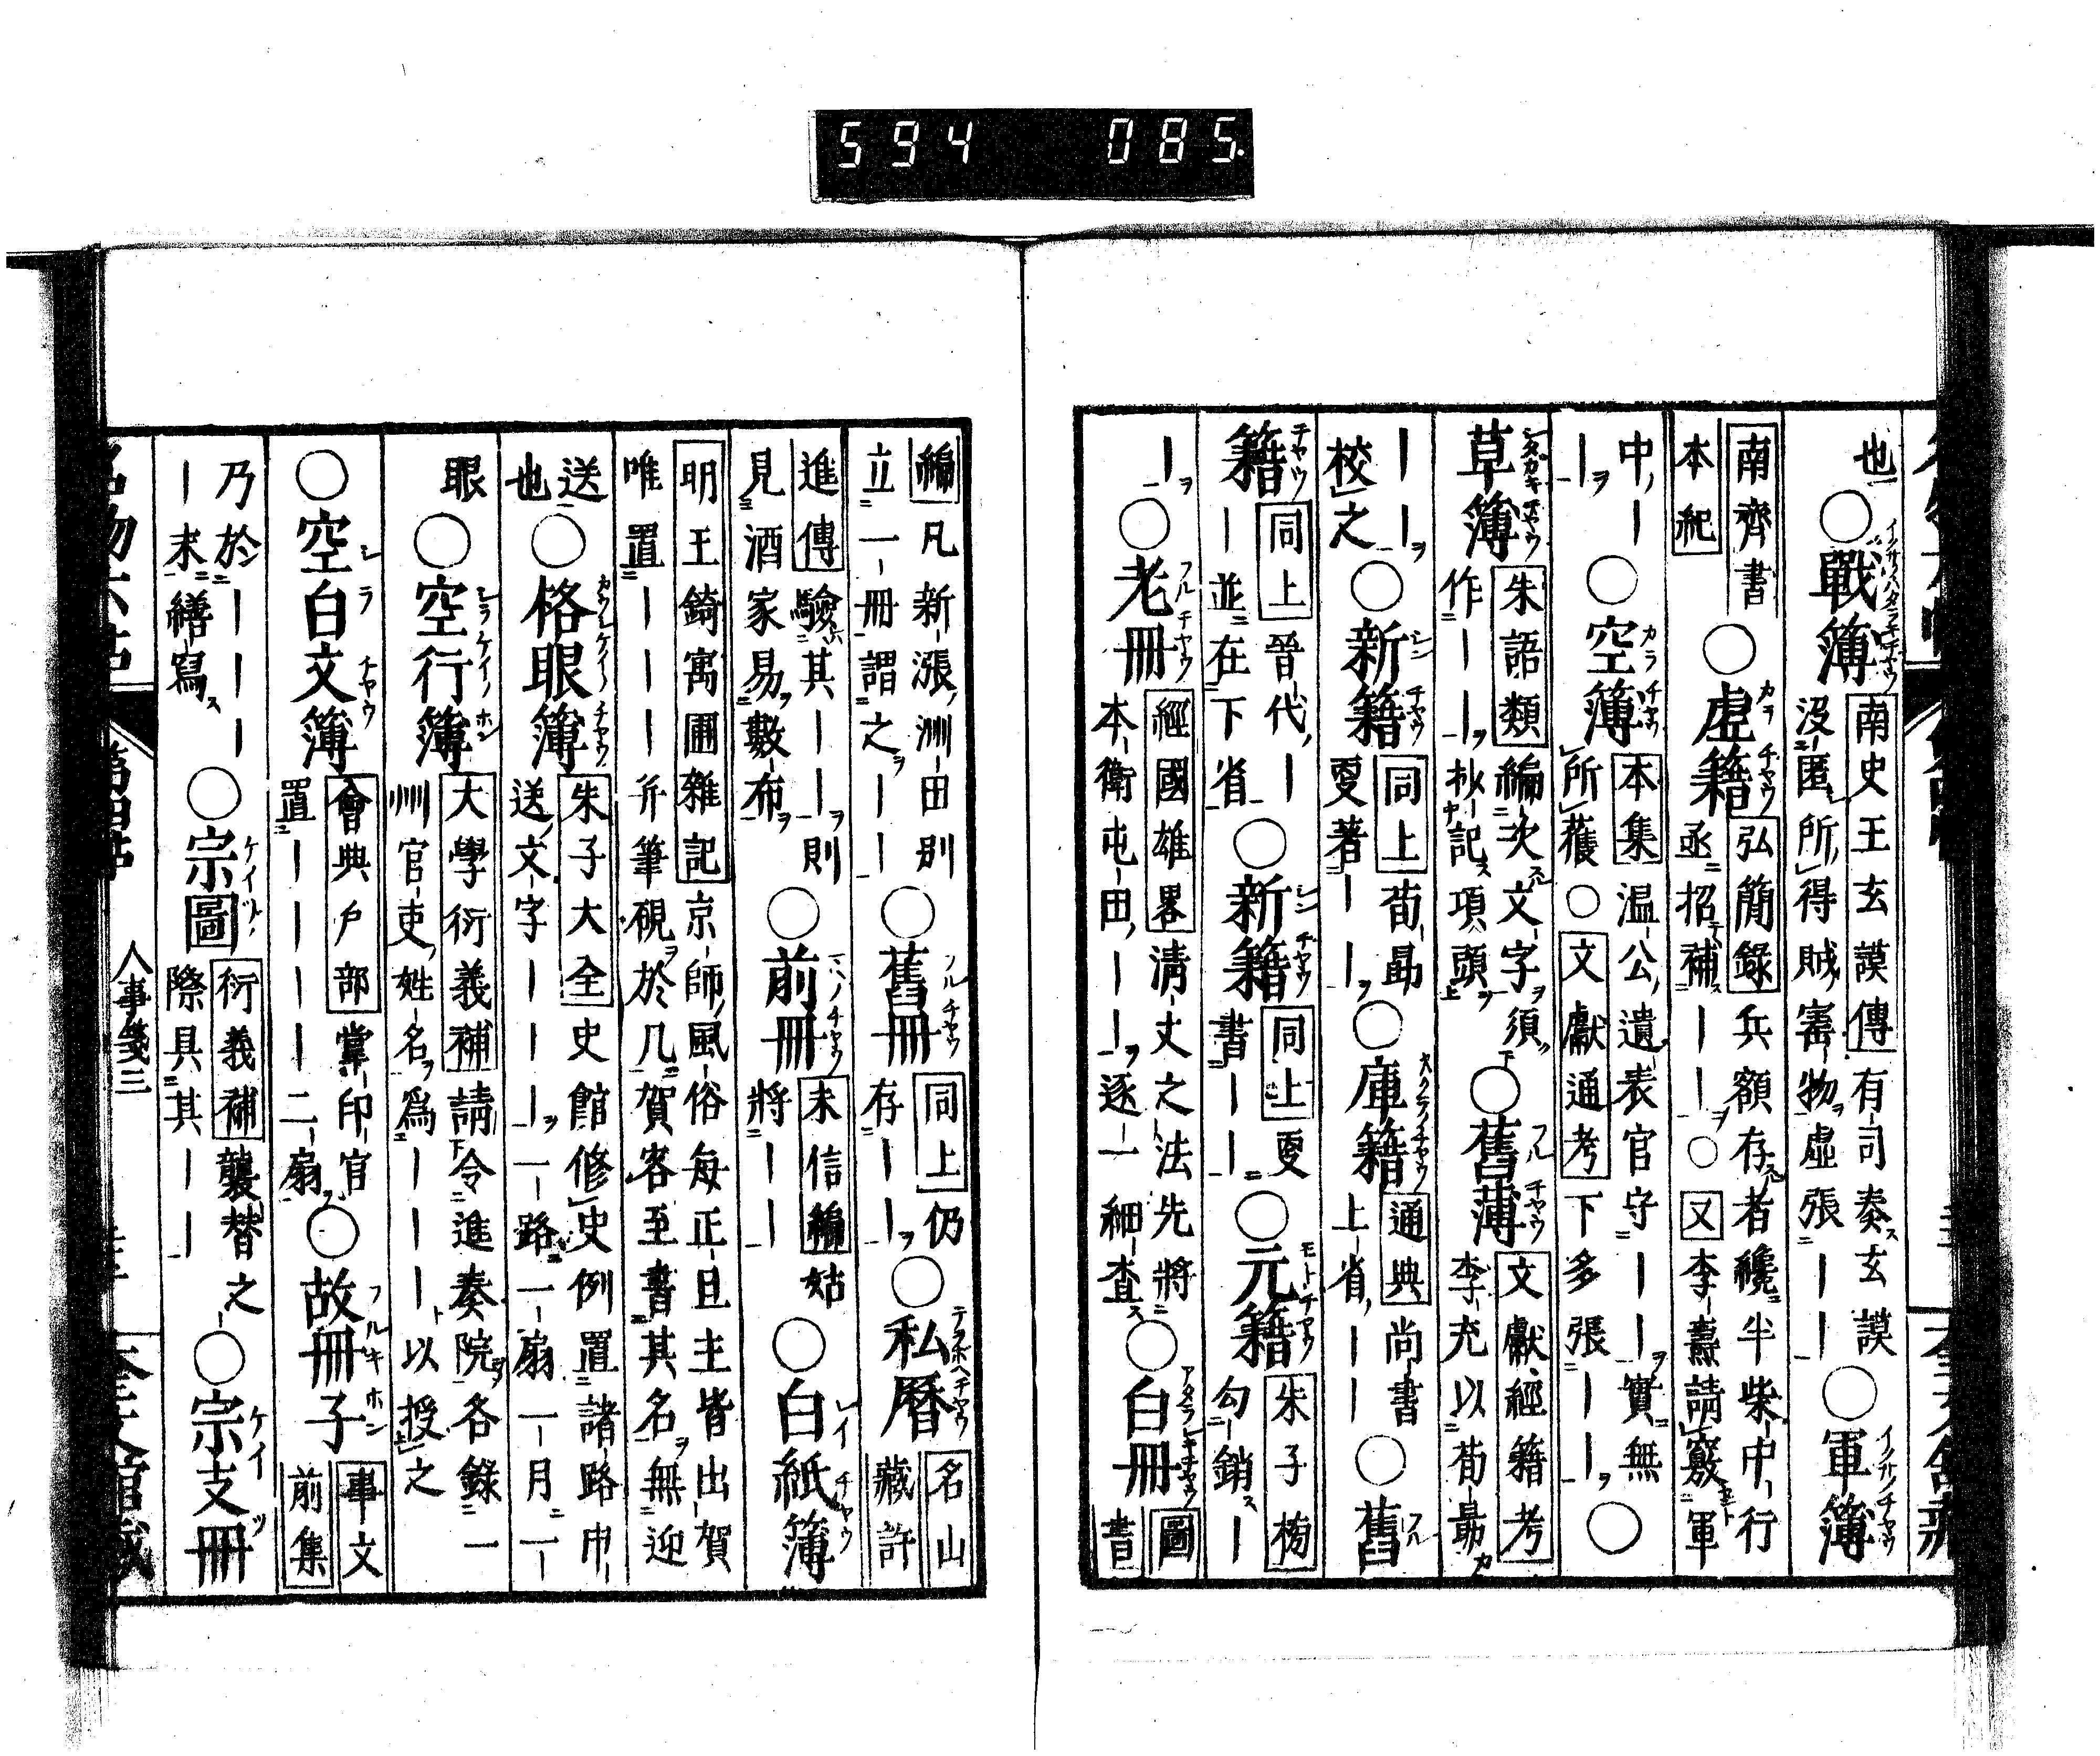 594 085.
也○戰簿 南史王玄謨傳 有司奏玄謨
沒匿所得賊寳物虛張｜｜○軍簿
南齊書
本紀○虛籍 弘簡錄 兵額存者纔半柴中行
丞招補｜｜○又李燾請竅軍
中｜
｜○空簿 本集 温公遺表官守｜｜實無
所獲○文獻通考 下多張｜｜○
草簿 朱語類 編次文字須
作｜｜抄記項頭○舊薄 文獻經籍考
李充以荀勗
｜｜
校之○新籍 同上 荀勗
更著｜｜○庫籍 通典 尚書
上省｜｜○舊
籍 同上 晉代｜
｜並在下省○新籍 同上 更
書｜｜○元籍 朱子
勾銷｜
｜○老冊 經國雄畧 淸丈之法先將
本衛屯田｜｜逐一細查○白冊 圖
書
編 凡新漲洲田別
立一冊謂之｜｜○舊冊 同上 仍
存｜｜○私曆 名山
藏許
進傳 驗其｜｜則
見酒家易數布○前冊 未信編 姑
將｜｜○白紙簿
明王錡寓圃雜記 京師風俗每正旦主皆出賀
唯置｜｜｜幷筆硯於几賀客至書其名無迎
送
也○格眼簿 朱子大全 史館修史例置諸路巾
送文字｜｜一路一扇一月一
眼○空行簿 大學衍義補 請令進奏院各錄一
州官吏姓名爲｜｜｜以授之
○空白文簿 會典戶部 掌印官
置｜｜｜｜二扇○故冊子 事文
前集
乃於｜｜｜
｜末繕寫○宗圖 衍義補 襲替之
際具其｜｜○宗支冊
人事箋三